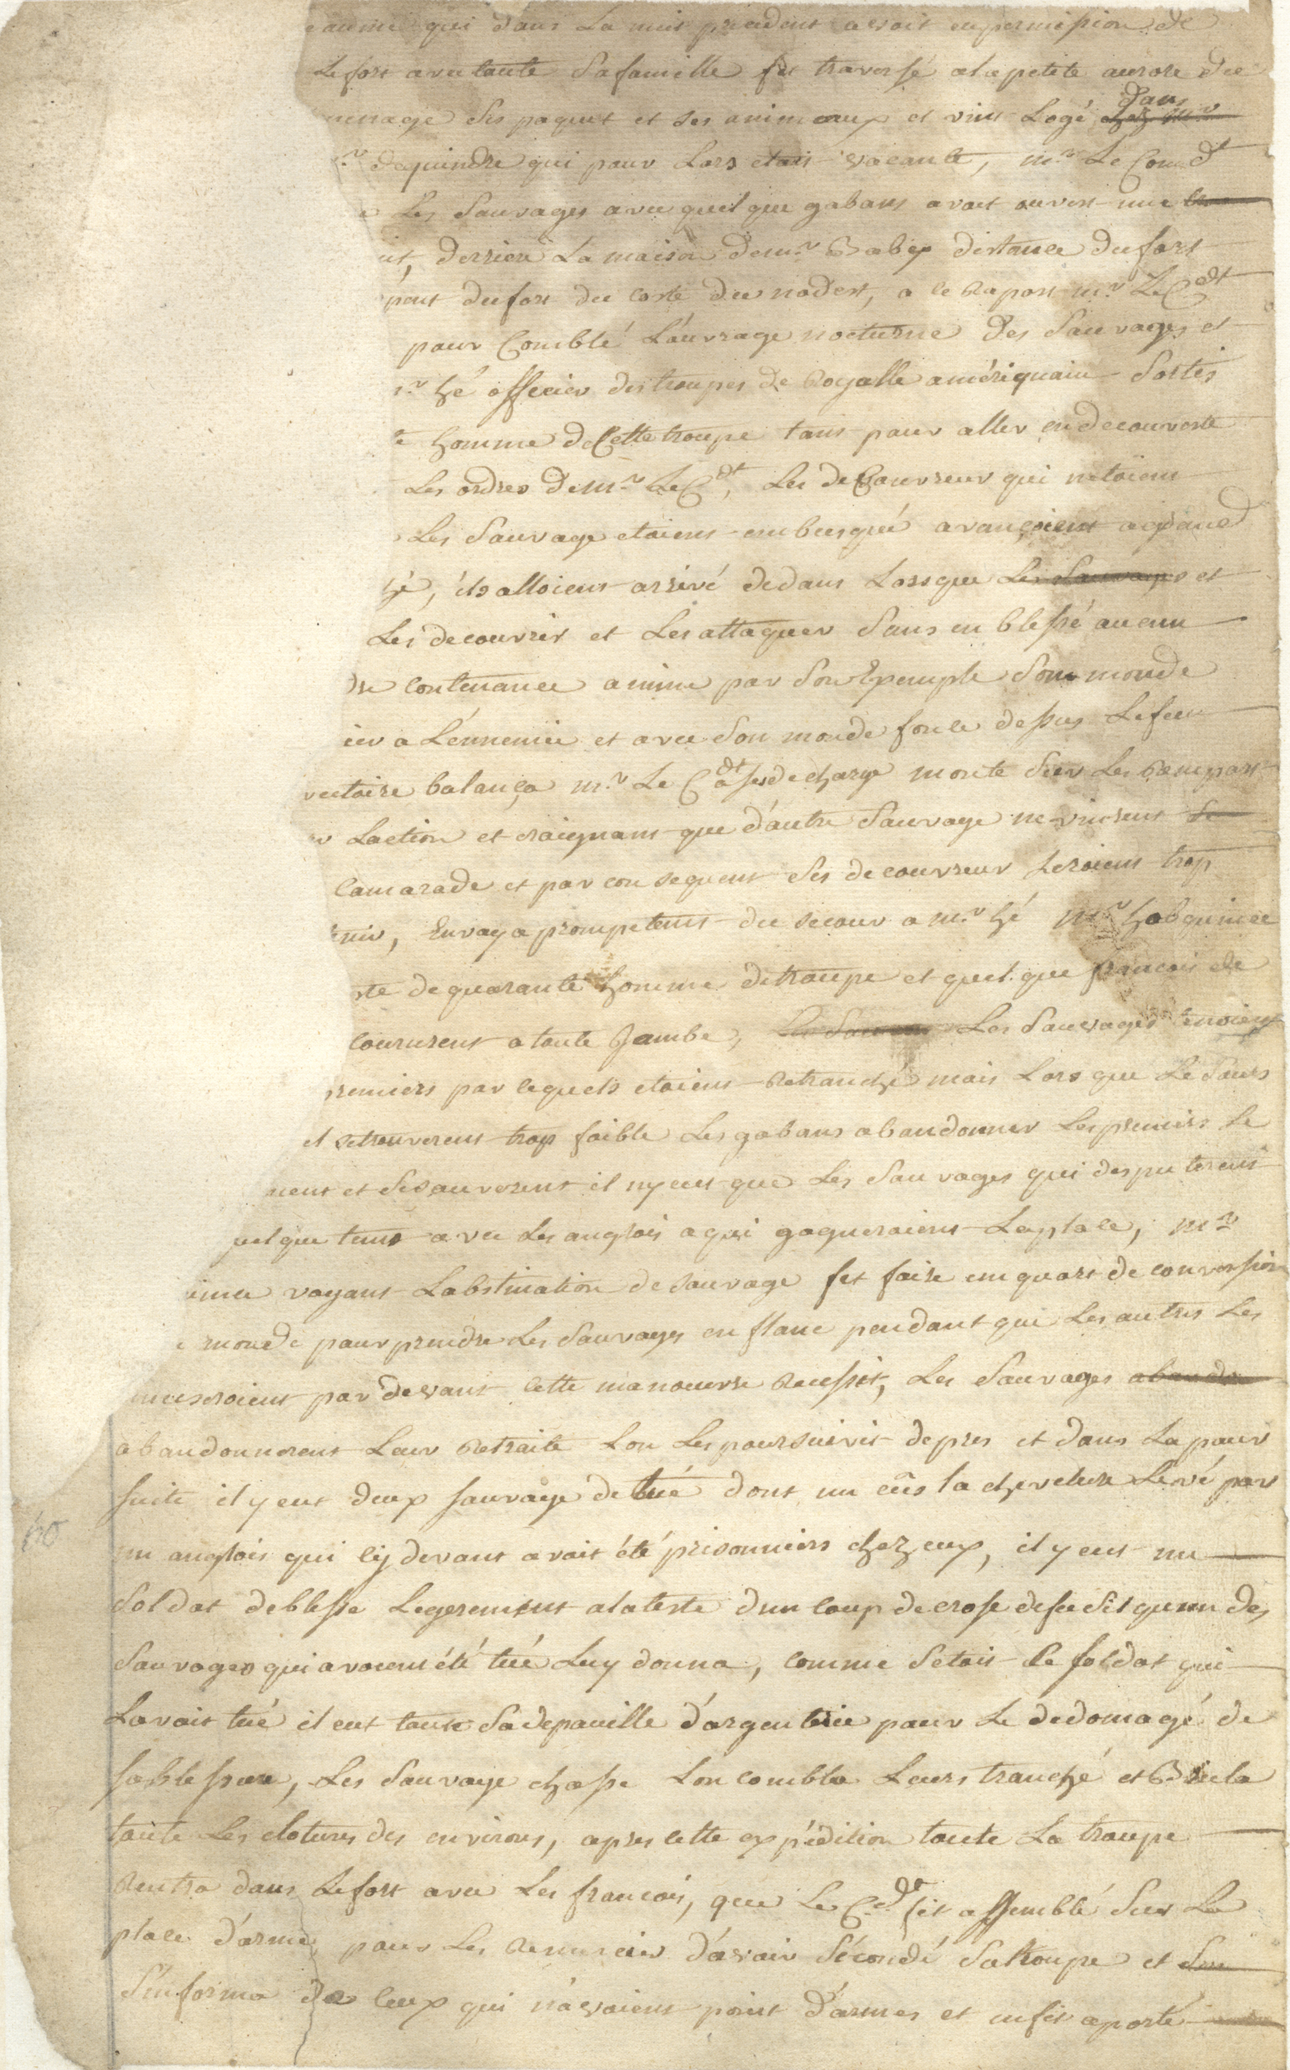 eaume qui dans La nuit precedent avoit eu permission de
Le fort avec toute Sa famille fit traversé a la petite aurore du
menage Ses paquet et ses animeaux et vint Logé chez mr dans
mr dequindre qui pour Lors etait vacante, mr Le Comdt
Les Sauvages avec quelque gabans avoit ouvert une
nt, derriere La maison de mr Babÿ distance du fort
pent du fort du costé du nordest, a ce Raport mr Le Cdt
pour Comblé L'ouvrage nocturne des Sauvages et
mr hé officier des troupes de Royalle amériquain Sortit
te homme de Cette troupe tant pour aller en decouverte
Les ordres de mr Le Cdt, Les deCouvreur qui n'etoient
Les Sauvage etoient embusqué avançoient a grand
hé, ils alloient arrivé dedans Lorsque Les Sauvages et
Les decouvrir et Les attaquer Sans en blessé aucun
dre contenance anime par Son Exemple Son monde
ier a L'ennemie et avec Son monde fonce dessus Le feu
rectaire balança mr Le Cdt a ses decharge monte Sur Les Rempart
r Laction et craignant que d'autre Sauvage ne vinrent
Camarade et par consequent Ses decouvreur seroient trop
tenir, Envoya prompetent du secour a mr hé mr hobquince
ste de quarante homme de troupe et quelque francois
coururent a toute Jambe, Les Sauvages tenoient
premiers par lequels etoient Retranché mais Lors que Le Secours
et se trouverent trop foible Les gabans abandonner Les premiers Le
ment et se sauverent il n'y eut que Les Sauvages qui desputerent
uelque tems avec Les anglois a qui gagneroient La place, mr
ince voyant Labstination de Sauvage fit faire un quart de conversion
monde pour prendre Les Sauvages en flanc pendant que Les autres Les
museroient par devant cette manoeuvre Reussit, Les Sauvages abandon
abandonnerent Leur Retraite Lon Les poursuivit de pres et dans La pour
suite il y eut deux sauvage de tué dont un eüs la chevelure Levé par
un anglois qui cÿ devant avoit été prisonniers chez eux, il y eut un
Soldat de blesse Legerement a la teste d'un coup de crose de fusil qu'un des
Sauvages qui avoient été tué Luy donna, comme Setoit Le soldat qui
Lavoit tué il eut toute Sa depouille d'argenterie pour Le dedomagé de
sa blessure, Les Sauvage chasse Lon combla Leurs tranché et Brula
toute Les clotures des environs, apres cette expédition toute La troupe
Rentra dans Le fort avec Les francois, que Le Cdt fit assemblé Sur La
place d'arme pour Les Remercier d'avoir Secondé Sa troupe et
S'informa de ceux qui n'avoient point d'armes et en fit aporté